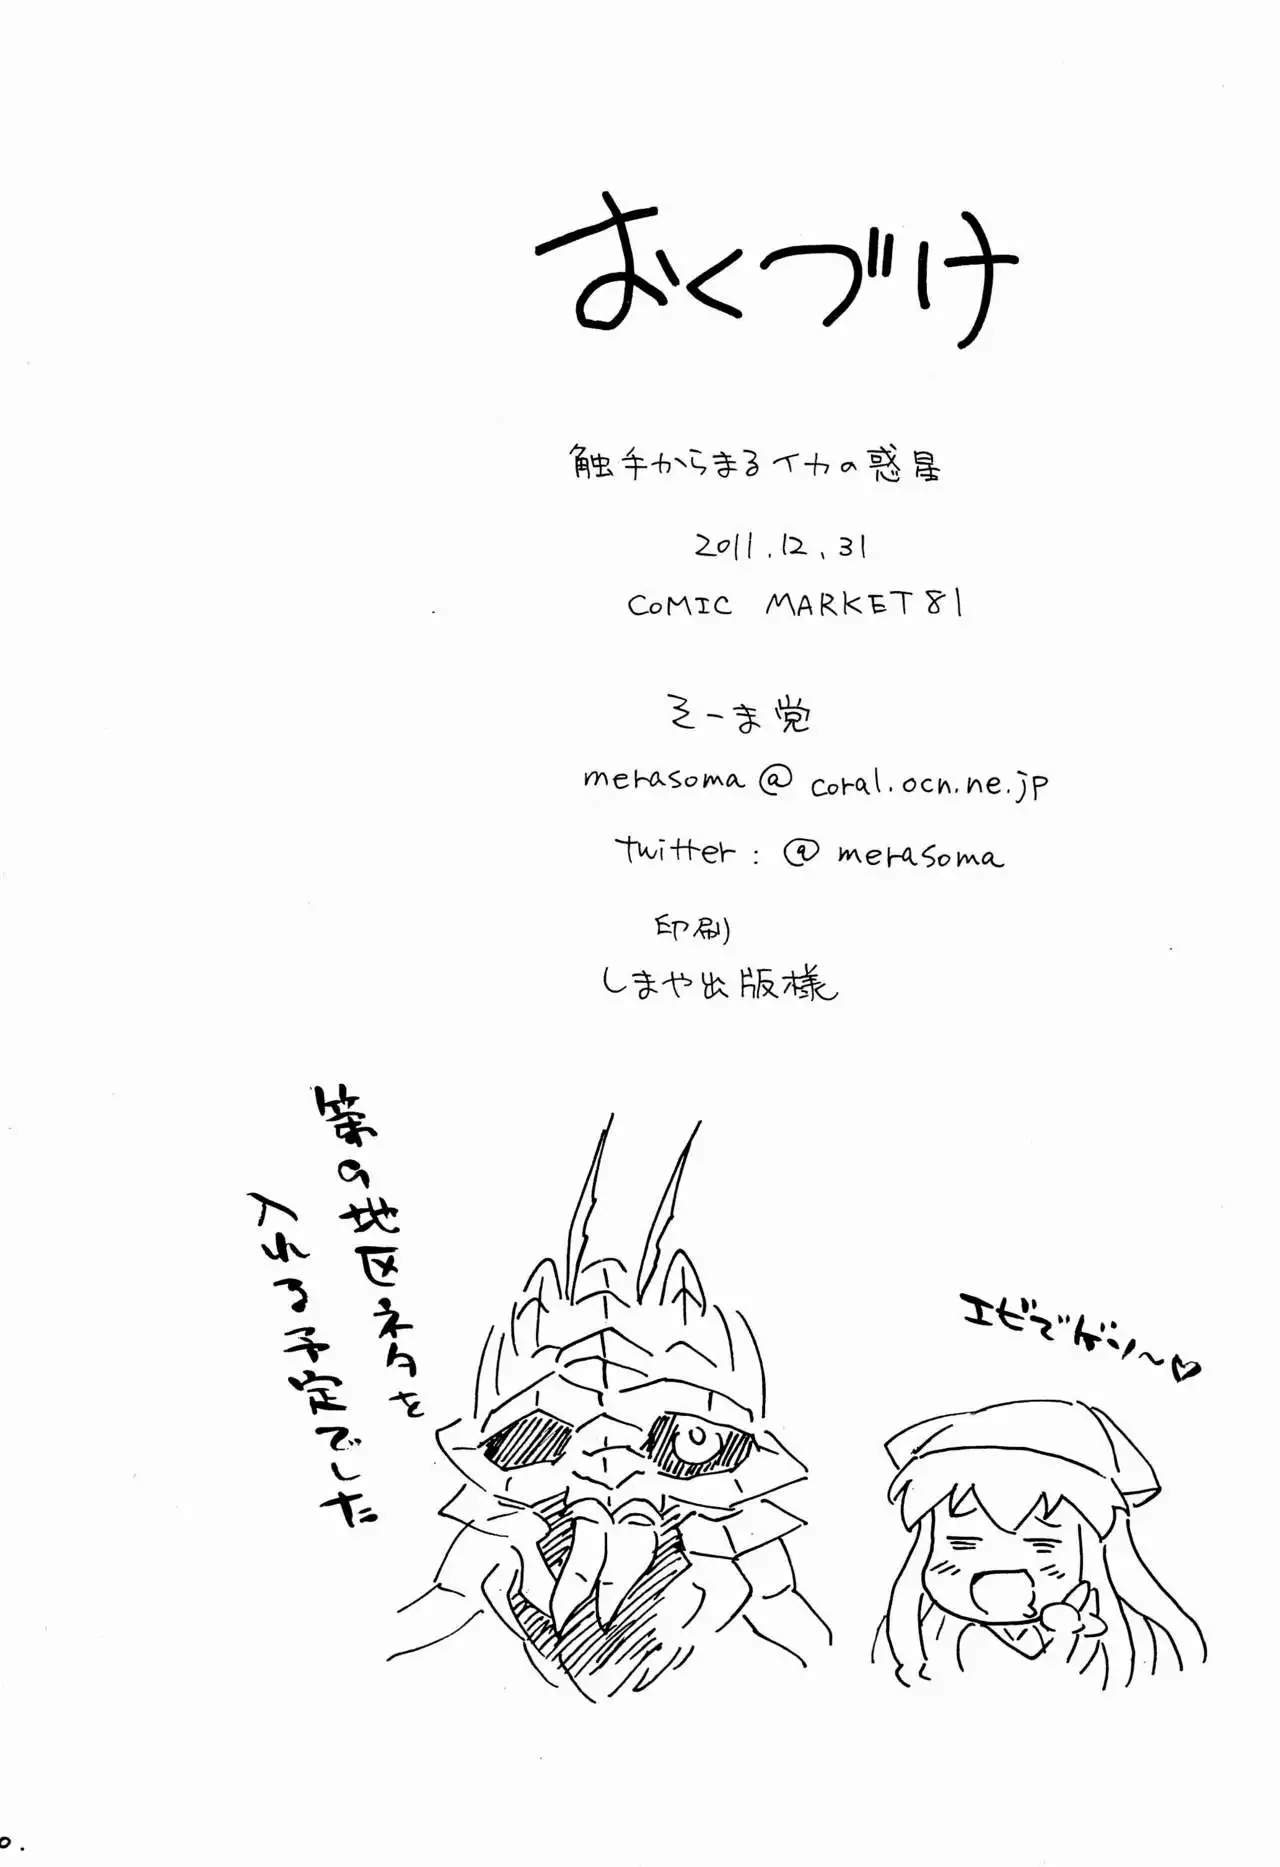 おくづけ
触手からまるイカの惑星
2011.12.31
COMIC MARKET81
そーま党
merasoma@coral.ocn.ne.jp
twitter:@merasoma
印刷
しまや出版様
第の地区ネタを
入れる予定でした
エビでゲソ〜♡